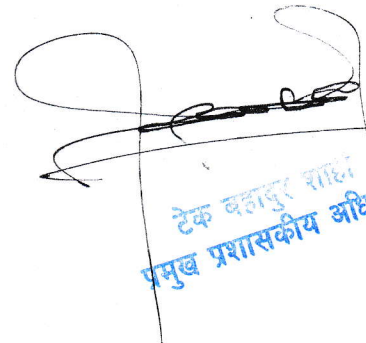 टेक बहादुर शाही
प्रमुख प्रशासकीय अधि